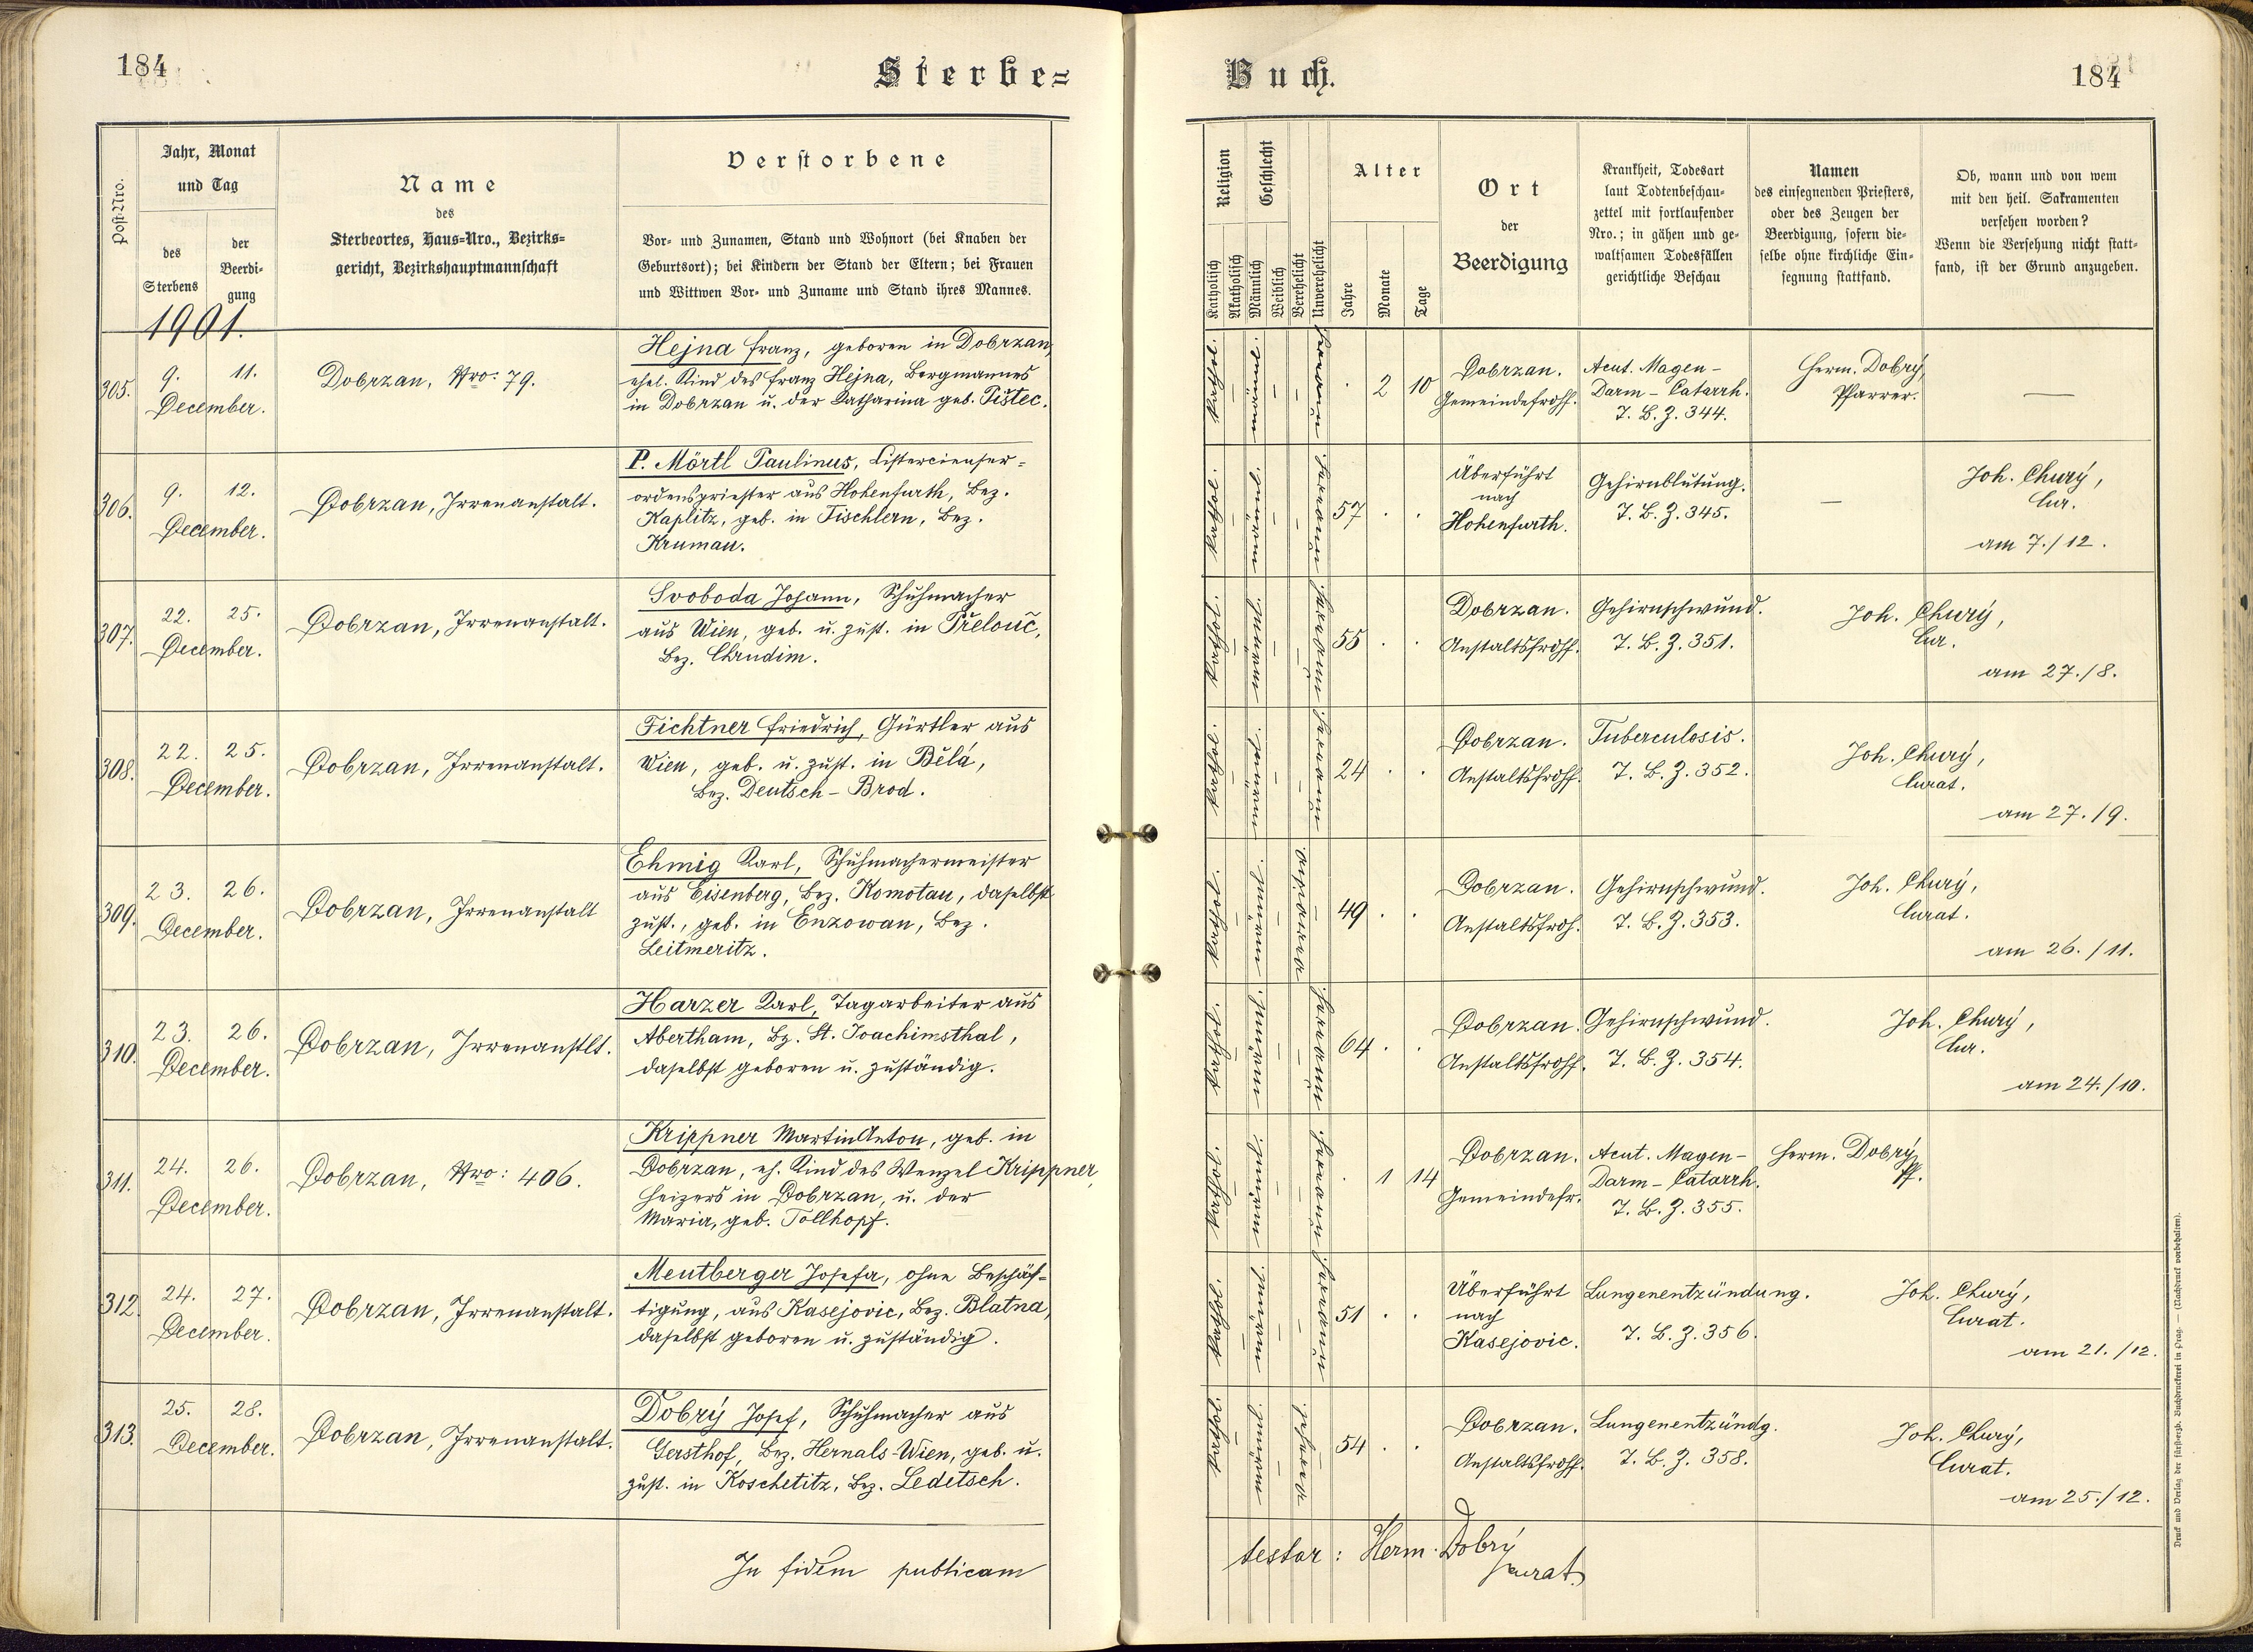 184
Sterbe=
Buch.
184
Post-Nro.
Jahr, Monat
und Tag
des
Sterbens
der
Beerdi-
gung
Name
des
Sterbeortes, Haus-Nro., Bezirks=
gericht, Bezirkshauptmannschaft
Verstorbene
Vor- und Zunamen, Stand und Wohnort (bei Knaben der
Geburtsort); bei Kindern der Stand der Eltern; bei Frauen
und Wittwen Vor- und Zuname und Stand ihres Mannes.
Religion
Katholisch
Akatholisch
Geschlecht
Männlich
Weiblich
Verehelicht
Unverehelicht
Alter
Jahre
Monate
Tage
Ort
der
Beerdigung
Krankheit, Todesart
laut Todtenbeschau-
zettel mit fortlaufender
Nro.; in gähen und ge-
waltsamen Todesfällen
gerichtliche Beschau
Namen
des einsegnenden Priesters,
oder des Zeugen der
Beerdigung, sofern die-
selbe ohne kirchliche Ein-
segnung stattfand.
Ob, wann und von wem
mit den heil. Sakramenten
versehen worden?
Wenn die Versehung nicht statt-
fand, ist der Grund anzugeben.
1901.
305.
9. 11.
December.
Dobrzan, Nro: 79.
Hejna Franz, geboren in Dobrzan,
ehel. Kind des Franz Hejna, Bergmannes
in Dobrzan u. der Katharina geb. Pištec.
kathol.
2 10
Dobrzan.
Gemeindefrdhf.
Acut. Magen-
Darm-Catarrh.
T. B. Z. 344.
Herm. Dobrý,
Pfarrer.
306.
9. 12.
December.
Dobrzan, Irrenanstalt.
P. Mörtl Paulinus, Cistercienser-
ordenspriester aus Hohenfurth, Bez.
Kaplitz, geb. in Tischlern, Bez.
Krumau.
kathol.
57
Überführt
nach
Hohenfurth.
Gehirnblutung.
T. B. Z. 345.
Joh. Churý,
Cur.
am 7./12.
307.
22. 25.
December.
Dobrzan, Irrenanstalt.
Svoboda Johann, Schuhmacher
aus Wien, geb. u. zust. in Přelouč,
Bez. Chrudim.
kathol.
55
Dobrzan.
Anstaltsfrdhf.
Gehirnschwund.
T. B. Z. 351.
Joh. Churý,
Cur.
am 27./8.
308.
22. 25.
December.
Dobrzan, Irrenanstalt.
Fichtner Friedrich, Gürtler aus
Wien, geb. u. zust. in Bělá,
Bez. Deutsch-Brod.
kathol.
24
Dobrzan.
Anstaltsfrdhf.
Tuberculosis.
T. B. Z. 352.
Joh. Churý,
Curat.
am 27./9.
309.
23. 26.
December.
Dobrzan, Irrenanstalt
Ehmig Karl, Schuhmachermeister
aus Eisenberg, Bez. Komotau, daselbst
zust., geb. in Enzowan, Bez.
Leitmeritz.
kathol.
49
Dobrzan.
Anstaltsfrdh.
Gehirnschwund.
T. B. Z. 353.
Joh. Churý,
Curat.
am 26./11.
310.
23. 26.
December.
Dobrzan, Irrenanstlt.
Harzer Karl, Tagarbeiter aus
Abertham, Bz. St. Joachimsthal,
daselbst geboren u. zuständig.
kathol.
64
Dobrzan.
Anstaltsfrdhf.
Gehirnschwund.
T. B. Z. 354.
Joh. Churý,
Cur.
am 24./10.
311.
24. 26.
December.
Dobrzan, Nro: 406.
Krippner Martin Anton, geb. in
Dobrzan, eh. Kind des Wenzel Krippner,
Heizers in Dobrzan, u. der
Maria, geb. Tollhopf.
kathol.
1 14
Dobrzan.
Gemeindefr.
Acut. Magen-
Darm-Catarrh.
T. B. Z. 355.
Herm. Dobrý,
Pf.
312.
24. 27.
December.
Dobrzan, Irrenanstalt.
Meutberger Josefa, ohne Beschäf-
tigung, aus Kasejovic, Bez. Blatna,
daselbst geboren u. zuständig.
kathol.
51
Überführt
nach
Kasejovic.
Lungenentzündung.
T. B. Z. 356.
Joh. Churý,
Curat.
am 21./12.
313.
25. 28.
December.
Dobrzan, Irrenanstalt.
Dobrý Josef, Schuhmacher aus
Gersthof, Bez. Hernals-Wien, geb. u.
zust. in Koschetitz, Bez. Ledetsch.
kathol.
54
Dobrzan.
Anstaltsfrdhf.
Lungenentzündg.
T. B. Z. 358.
Joh. Churý,
Curat.
am 25./12.
In fidem publicam
testor: Herm. Dobrý
Druck und Verlag der fürsterzb. Buchdruckerei in Prag. — (Nachdruck vorbehalten).